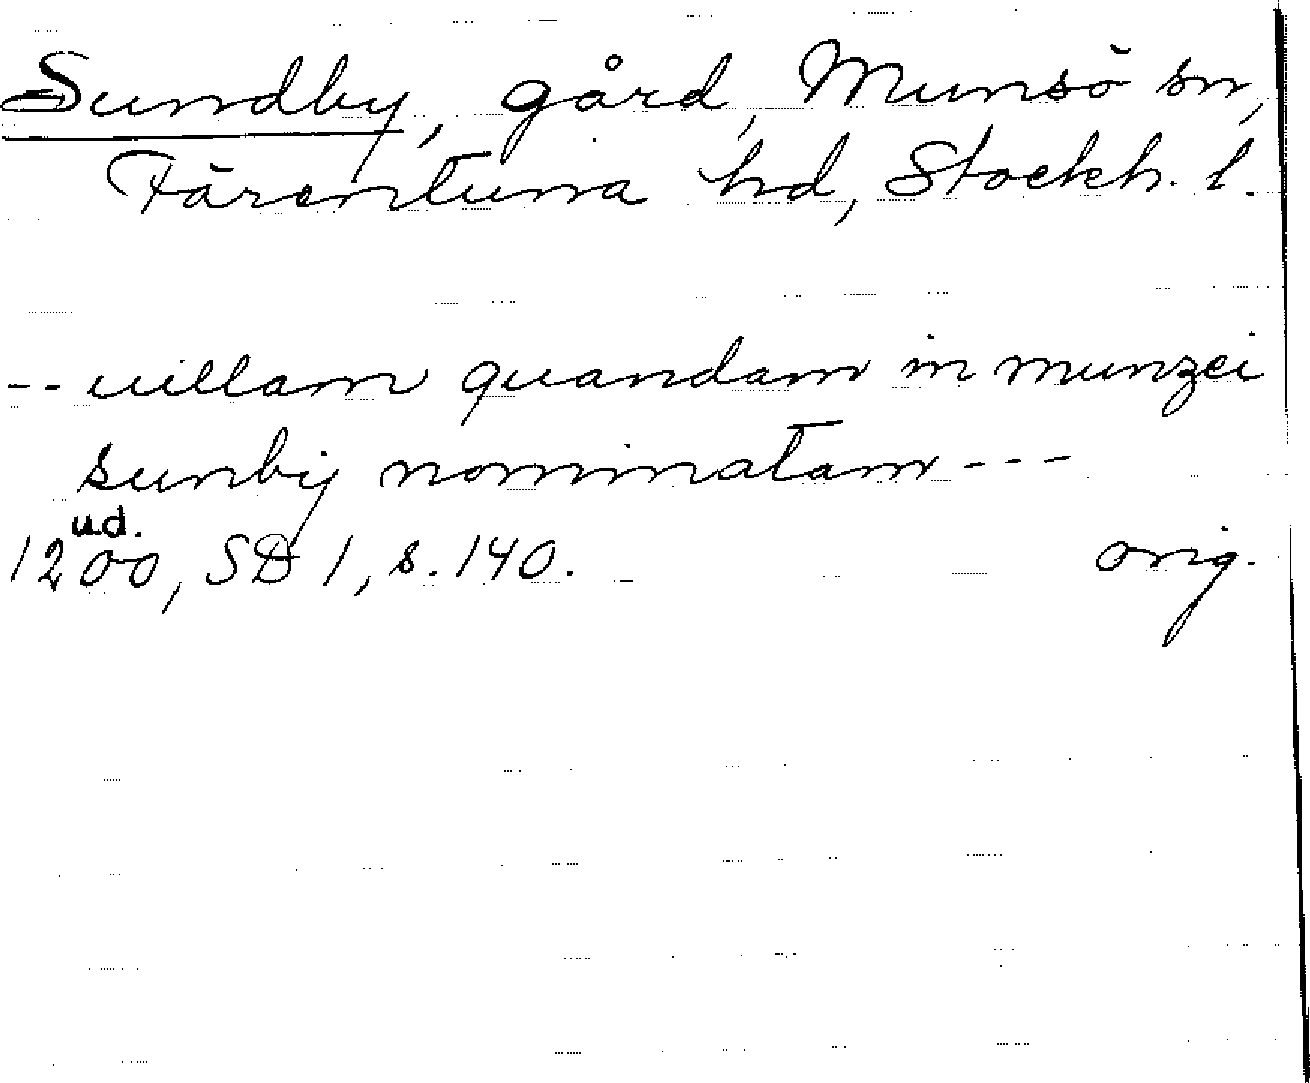 Sundby, gård, Munsö sn,
Färentuna hd, Stockh. l.
-- uillam quandam in munzei
sunbij nominatam ---
u.d.
1200, SD 1, s. 140. orig.